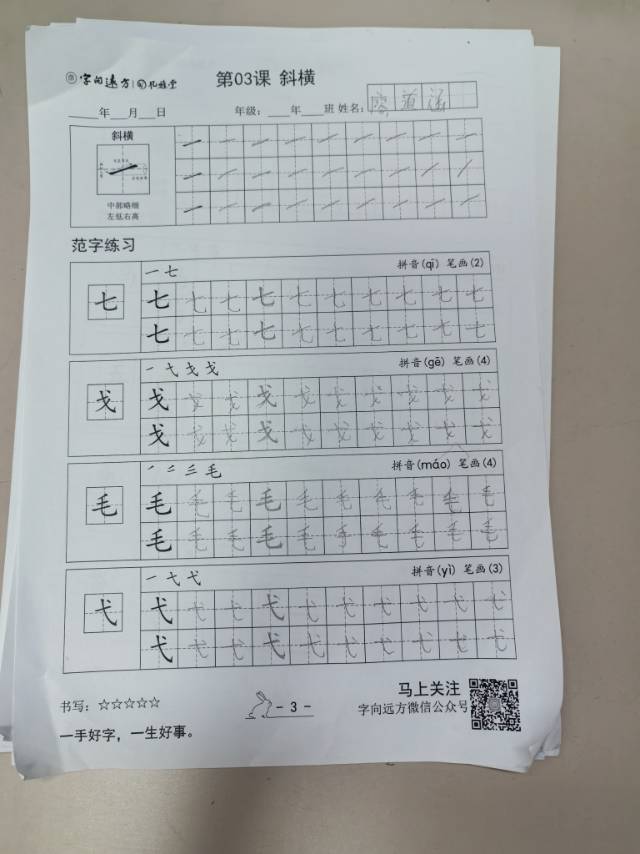 字向远方
第03课 斜横
年 月 日 年级： 年 班 姓名：
斜横
中部略细
左低右高
范字练习
一 七 拼音(qī) 笔画(2)
七 七 七 七 七 七 七 七 七 七 七
七 七 七 七 七 七 七 七 七 七
一 弋 戈 戈 拼音(gē) 笔画(4)
戈 戈 戈 戈 戈 戈 戈 戈 戈 戈 戈
戈 戈 戈 戈 戈 戈 戈 戈 戈 戈
毛 拼音(máo) 笔画(4)
毛 毛 毛 毛 毛 毛 毛 毛 毛 毛 毛
毛 毛 毛 毛 毛 毛 毛 毛 毛 毛
一 弋 弋 拼音(yì) 笔画(3)
弋 弋 弋 弋 弋 弋 弋 弋 弋 弋 弋
弋 弋 弋 弋 弋 弋 弋 弋 弋 弋
书写：☆☆☆☆☆
- 3 -
马上关注
字向远方微信公众号
一手好字，一生好事。